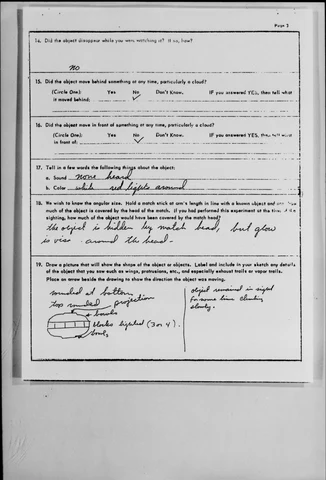 Page 2
14. Did the object disappear while you were watching it? If so, how?
no
15. Did the object move behind something at any time, particularly a cloud?
(Circle One): Yes No Don't Know. IF you answered YES, then tell what
it moved behind:
16. Did the object move in front of something at any time, particularly a cloud?
(Circle One): Yes No Don't Know. IF you answered YES, then tell what
in front of:
17. Tell in a few words the following things about the object:
a. Sound none heard
b. Color white red lights around
18. We wish to know the angular size. Hold a match stick at arm's length in line with a known object and note how
much of the object is covered by the head of the match. If you had performed this experiment at the time of the
sighting, how much of the object would have been covered by the match head?
the object is hidden by match head, but glow
is around the head-
19. Draw a picture that will show the shape of the object or objects. Label and include in your sketch any details
of the object that you saw such as wings, protrusions, etc., and especially exhaust trails or vapor trails.
Place an arrow beside the drawing to show the direction the object was moving.
rounded at bottom
top rounded projection
bowls
blocks lighted (3 or 4).
bowls
object remained in sight
for some time climbing
slowly.